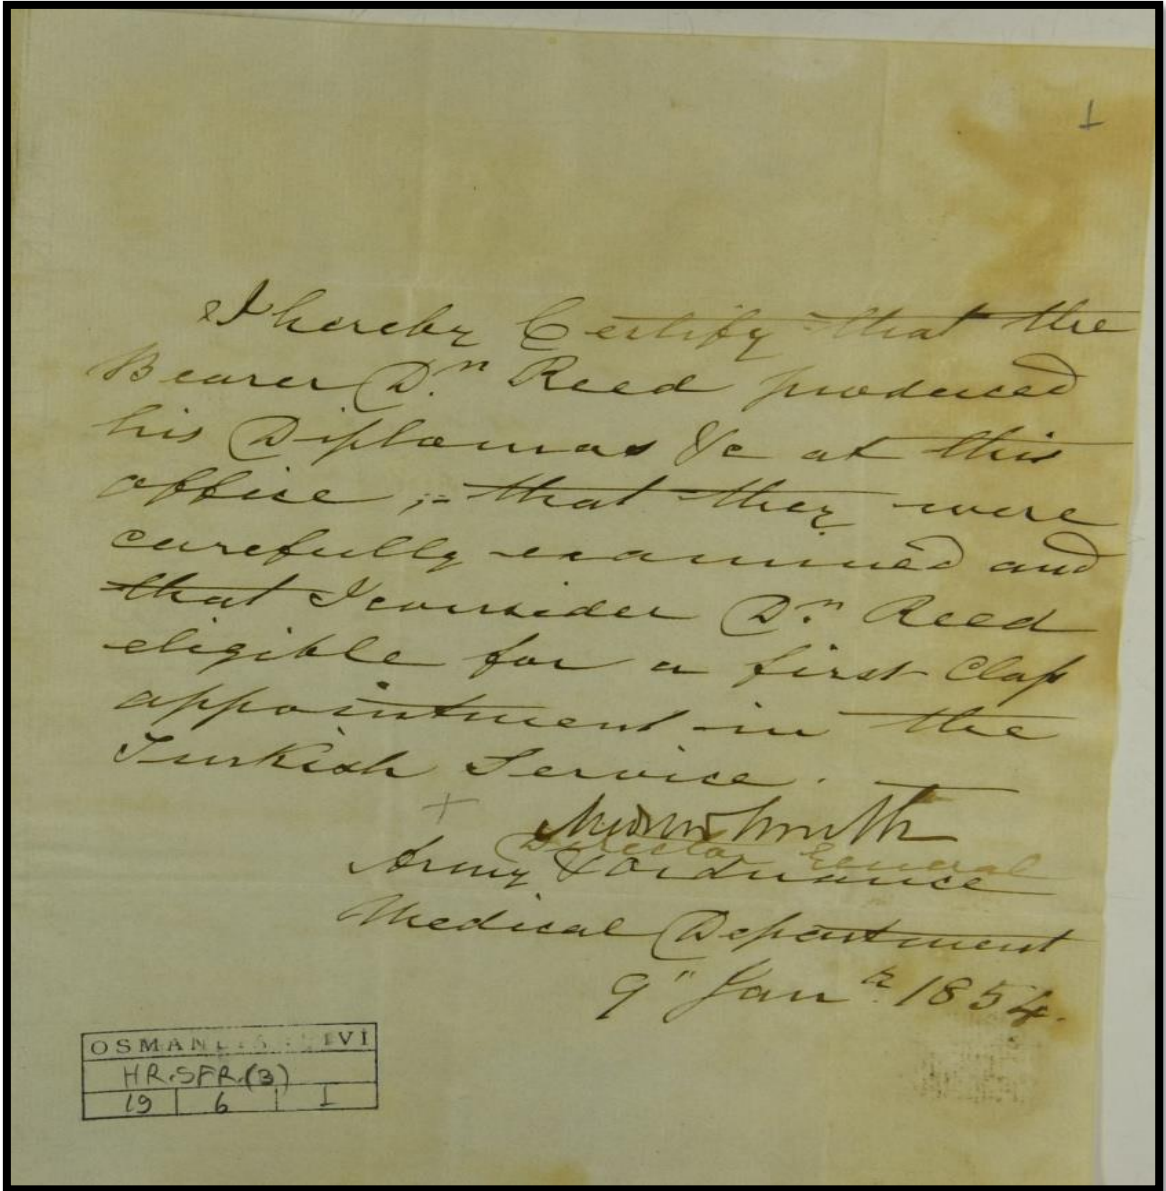 1
I hereby Certify that the
Bearer Dr. Reed produced
his Diplomas &c at this
office ;- that they were
carefully examined and
that I consider Dr. Reed
eligible for a first Class
appointment in the
Turkish Service.
Smith
Director General
Army & Ordnance
Medical Department
9" Jany. 1854.
OSMANLI VI
HR.SFR.(3)
19 6 1